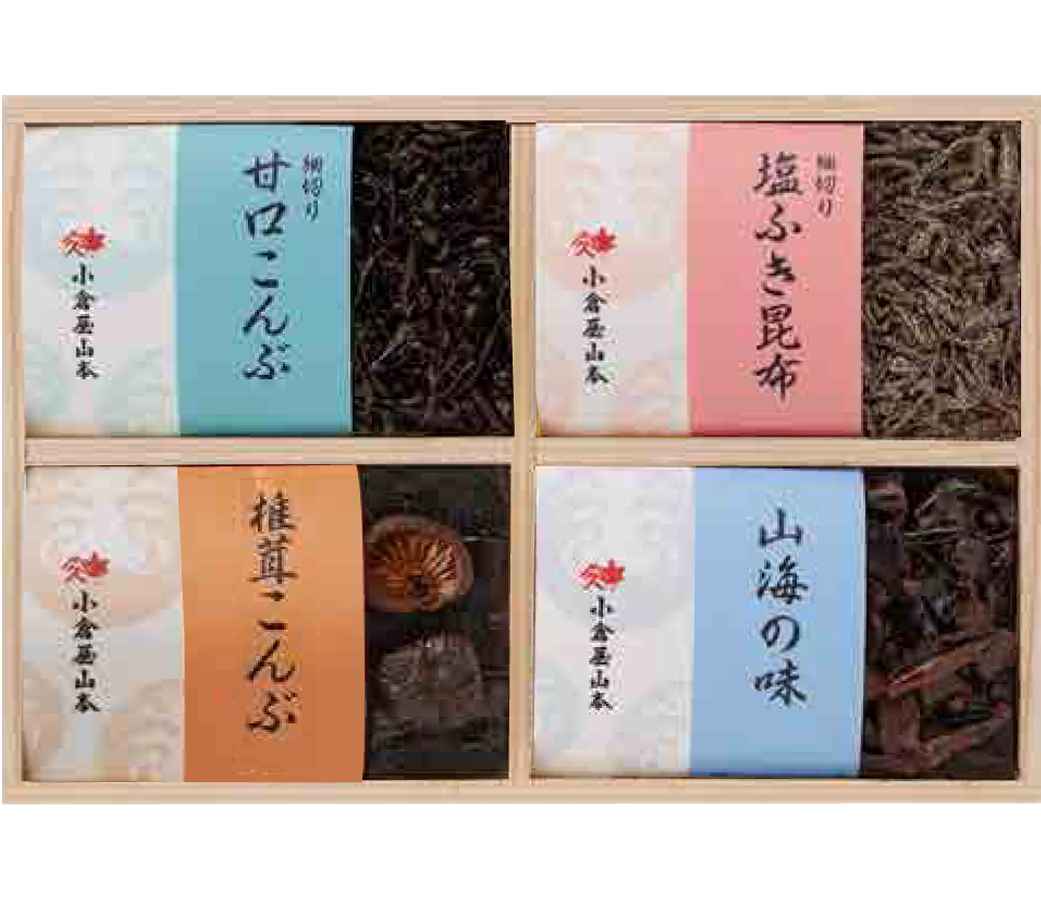 細切り
甘口こんぶ
久
小倉屋山本
細切り
塩ふき昆布
久
小倉屋山本
椎茸こんぶ
久
小倉屋山本
山海の味
久
小倉屋山本